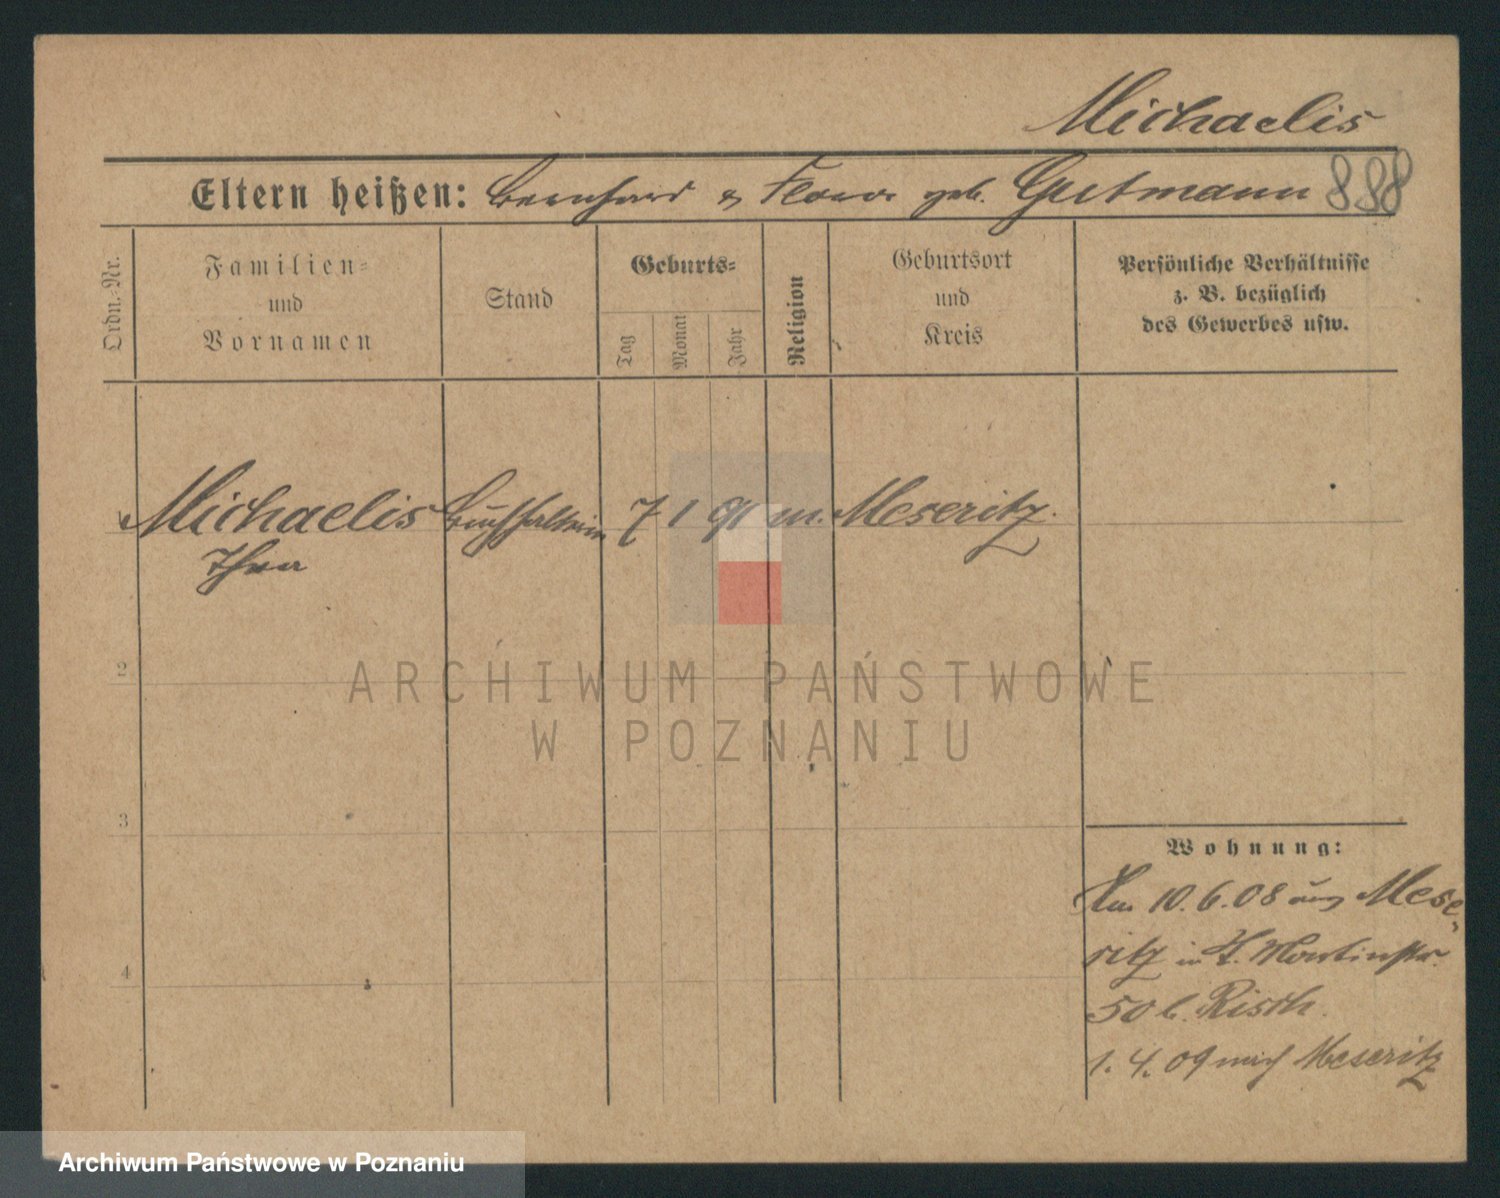 Michaelis
Eltern heißen: Bernhard & Flora geb. Gutmann 888
Ordn.-Nr.
Familien-
und
Vornamen
Stand
Geburts-
Tag
Monat
Jahr
Religion
Geburtsort
und
Kreis
Persönliche Verhältnisse
z. B. bezüglich
des Gewerbes usw.
1 Michaelis Buchhalterin 7 1 91 m. Meseritz.
2
3
4
Wohnung:
10.6.08 aus Mese-
ritz in St. Martinstr.
50 b. Risch.
1.4.09 nach Meseritz
ARCHIWUM PAŃSTWOWE
W POZNANIU
Archiwum Państwowe w Poznaniu